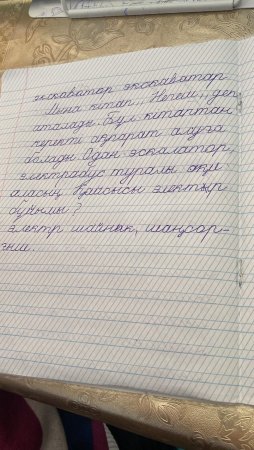 экскаватор экскаватор.
Мына кітап,, Неге?,, деп
аталады. Бұл кітаптан
керекті ақпарат алуға
болады. Одан эскалатор,
электробус туралы оқи
аласың. Қайсысы электқр
бұйымы?
электр шайнык, шаңсор-
ғыш.